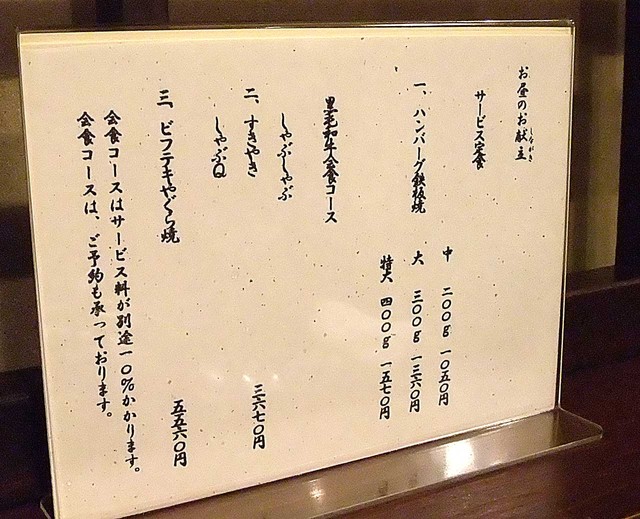 お昼のお献立
しながき
サービス定食
一、ハンバーグ鉄板焼
中 二〇〇g 一〇五〇円
大 三〇〇g 一三六〇円
特大 四〇〇g 一五七〇円
黒毛和牛会食コース
しゃぶしゃぶ
二、すきやき 三六七〇円
しゃぶQ
三、ビフテキやぐら焼 五五六〇円
会食コースはサービス料が別途一〇%かかります。
会食コースは、ご予約も承っております。